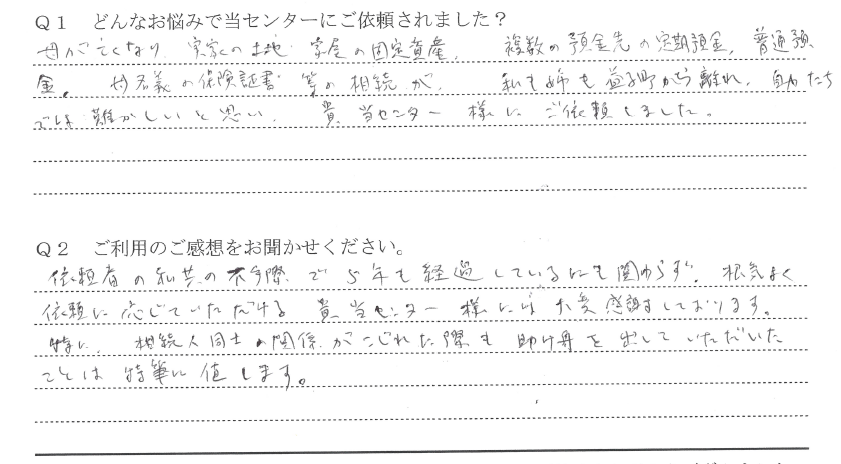 Ｑ１　どんなお悩みで当センターにご依頼されました？
母が亡くなり、実家の土地、家屋の固定資産、複数の預金先の定期預金、普通預
金、母名義の保険証書等の相続が、私も姉も益子町から離れ、自分たち
では難かしいと思い、貴、当センター様にご依頼しました。
Ｑ２　ご利用のご感想をお聞かせください。
依頼者の私共の不手際で５年も経過しているにも関わらず、根気よく
依頼に応じていただける貴、当センター様には大変感謝しております。
特に、相続人同士の関係がこじれた際も助け舟を出していただいた
ことは特筆に値します。